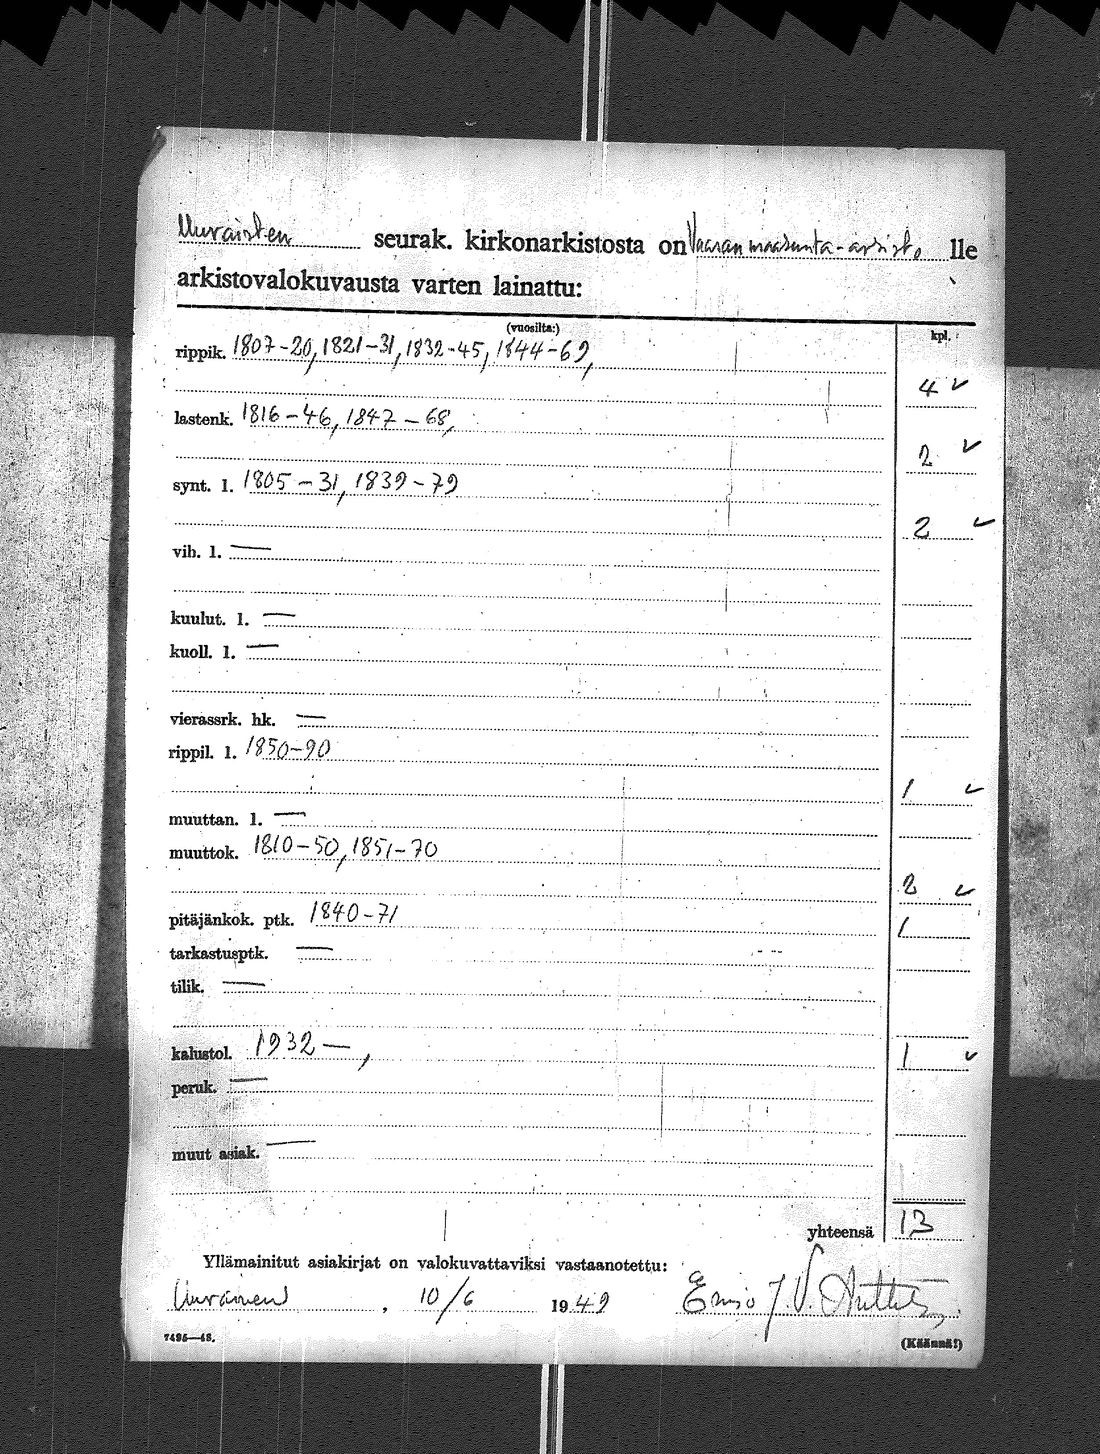 Uuraisten seurak. kirkonarkistosta on Vaasan maakunta-arkisto lle
arkistovalokuvausta varten lainattu:
(vuosilta:) kpl.
rippik. 1807-20, 1821-31, 1832-45, 1844-69,
4 ✓
lastenk. 1816-46, 1847-68,
2 ✓
synt. l. 1805-31, 1839-79
2 ✓
vih. l. —
kuulut. l. —
kuoll. l. —
vierassrk. hk. —
rippil. l. 1850-90
1 ✓
muuttan. l. —
muuttok. 1810-50, 1851-70
2 ✓
pitäjänkok. ptk. 1840-71 1
tarkastusptk. —
tilik. —
kalustol. 1932 —, 1 ✓
peruk. —
muut asiak. —
yhteensä 13
Yllämainitut asiakirjat on valokuvattaviksi vastaanotettu:
Uurainen, 10/6 1949 J. V.
7495—48. (Käännä!)